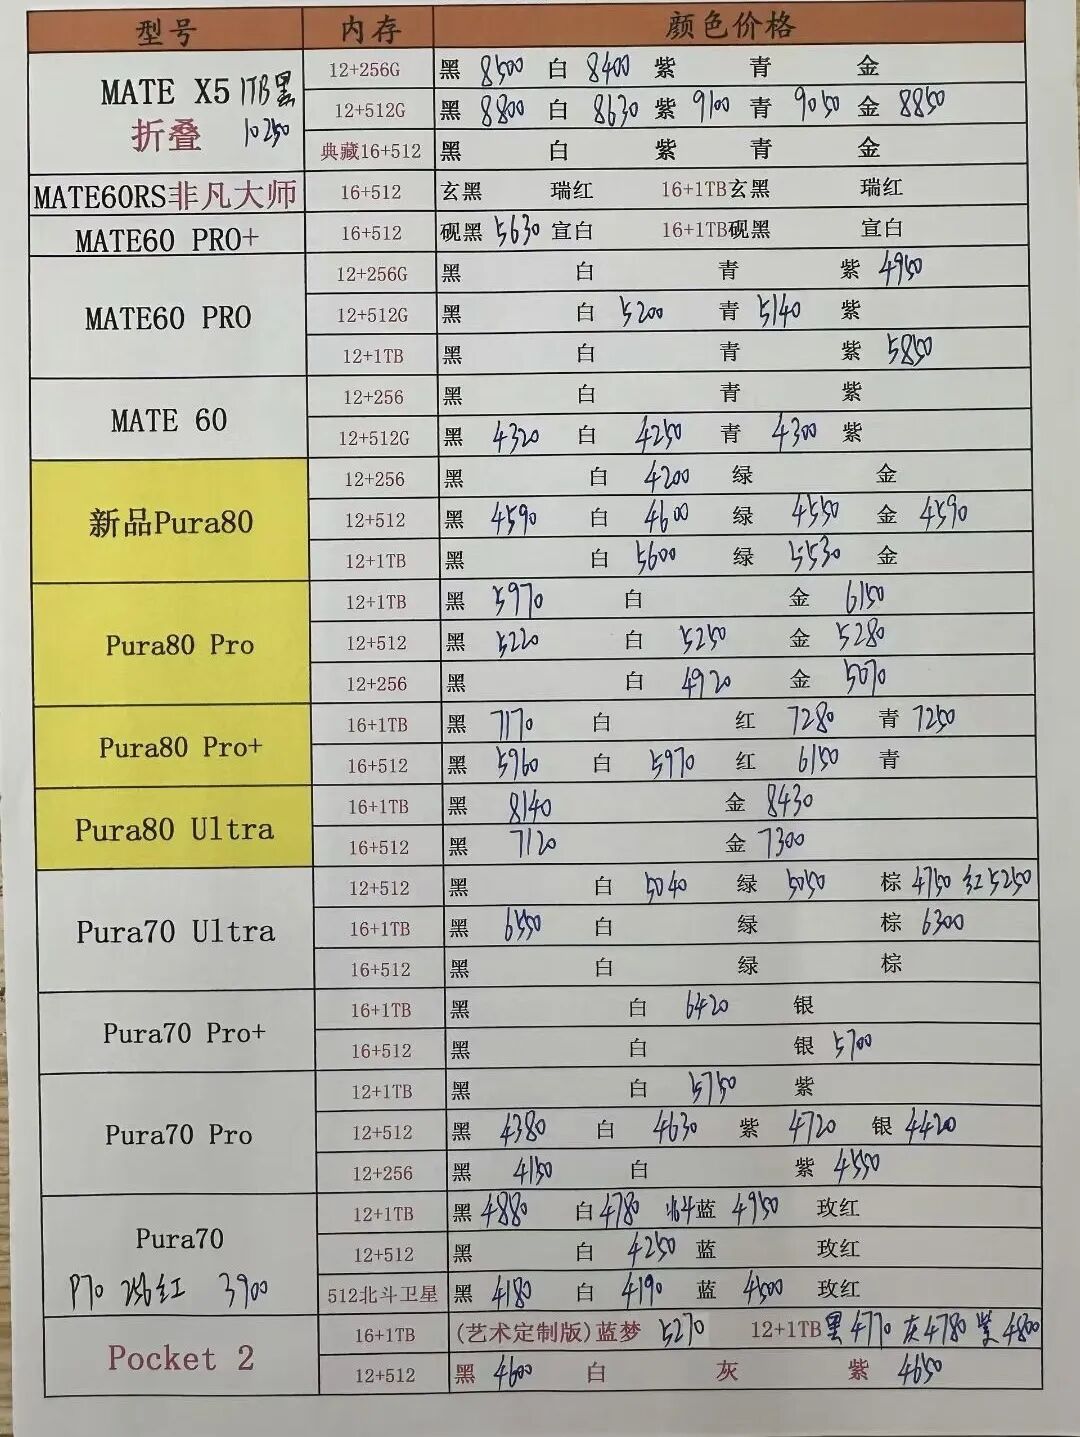 型号 内存 颜色价格
MATE X5 1TB黑 12+256G 黑 8500 白 8400 紫 青 金
折叠 10250 12+512G 黑 8800 白 8630 紫 9100 青 9050 金 8850
典藏16+512 黑 白 紫 青 金
MATE60RS非凡大师 16+512 玄黑 瑞红 16+1TB玄黑 瑞红
MATE60 PRO+ 16+512 砚黑 5630 宣白 16+1TB砚黑 宣白
12+256G 黑 白 青 紫 4950
MATE60 PRO 12+512G 黑 白 5200 青 5140 紫
12+1TB 黑 白 青 紫 5850
MATE 60 12+256 黑 白 青 紫
12+512G 黑 4320 白 4250 青 4300 紫
12+256 黑 白 4200 绿 金
新品Pura80 12+512 黑 4590 白 4600 绿 4550 金 4590
12+1TB 黑 白 5600 绿 5530 金
12+1TB 黑 5970 白 金 6150
Pura80 Pro 12+512 黑 5220 白 5250 金 5280
12+256 黑 白 4920 金 5070
Pura80 Pro+ 16+1TB 黑 7170 白 红 7280 青 7250
16+512 黑 5960 白 5970 红 6150 青
Pura80 Ultra 16+1TB 黑 8140 金 8430
16+512 黑 7120 金 7300
12+512 黑 白 5040 绿 5050 棕 4750 红5250
Pura70 Ultra 16+1TB 黑 6550 白 绿 棕 6300
16+512 黑 白 绿 棕
Pura70 Pro+ 16+1TB 黑 白 6420 银
16+512 黑 白 银 5700
12+1TB 黑 白 5750 紫
Pura70 Pro 12+512 黑 4380 白 4630 紫 4720 银 4420
12+256 黑 4150 白 紫 4550
Pura70 12+1TB 黑 4880 白 4780 蓝 4950 玫红
12+512 黑 白 4250 蓝 玫红
P70 256红 3900 512北斗卫星 黑 4180 白 4190 蓝 4500 玫红
Pocket 2 16+1TB (艺术定制版)蓝梦 5270 12+1TB黑4770 灰4780 紫4800
12+512 黑 4600 白 灰 紫 4650